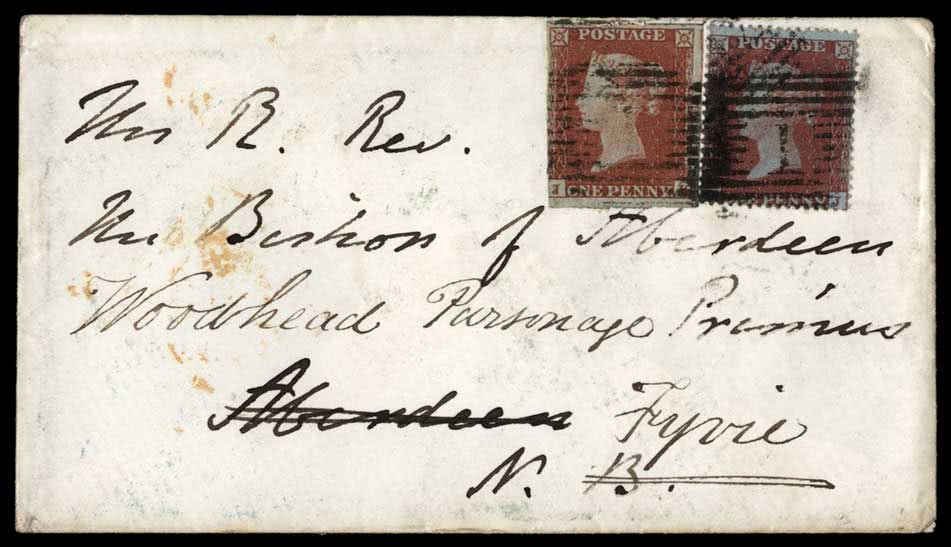 POSTAGE POSTAGE
ONE PENNY PENNY
The R. Rev.
The Bishop of Aberdeen
Woodhead Parsonage Primus
Aberdeen Fyvie
N. B.